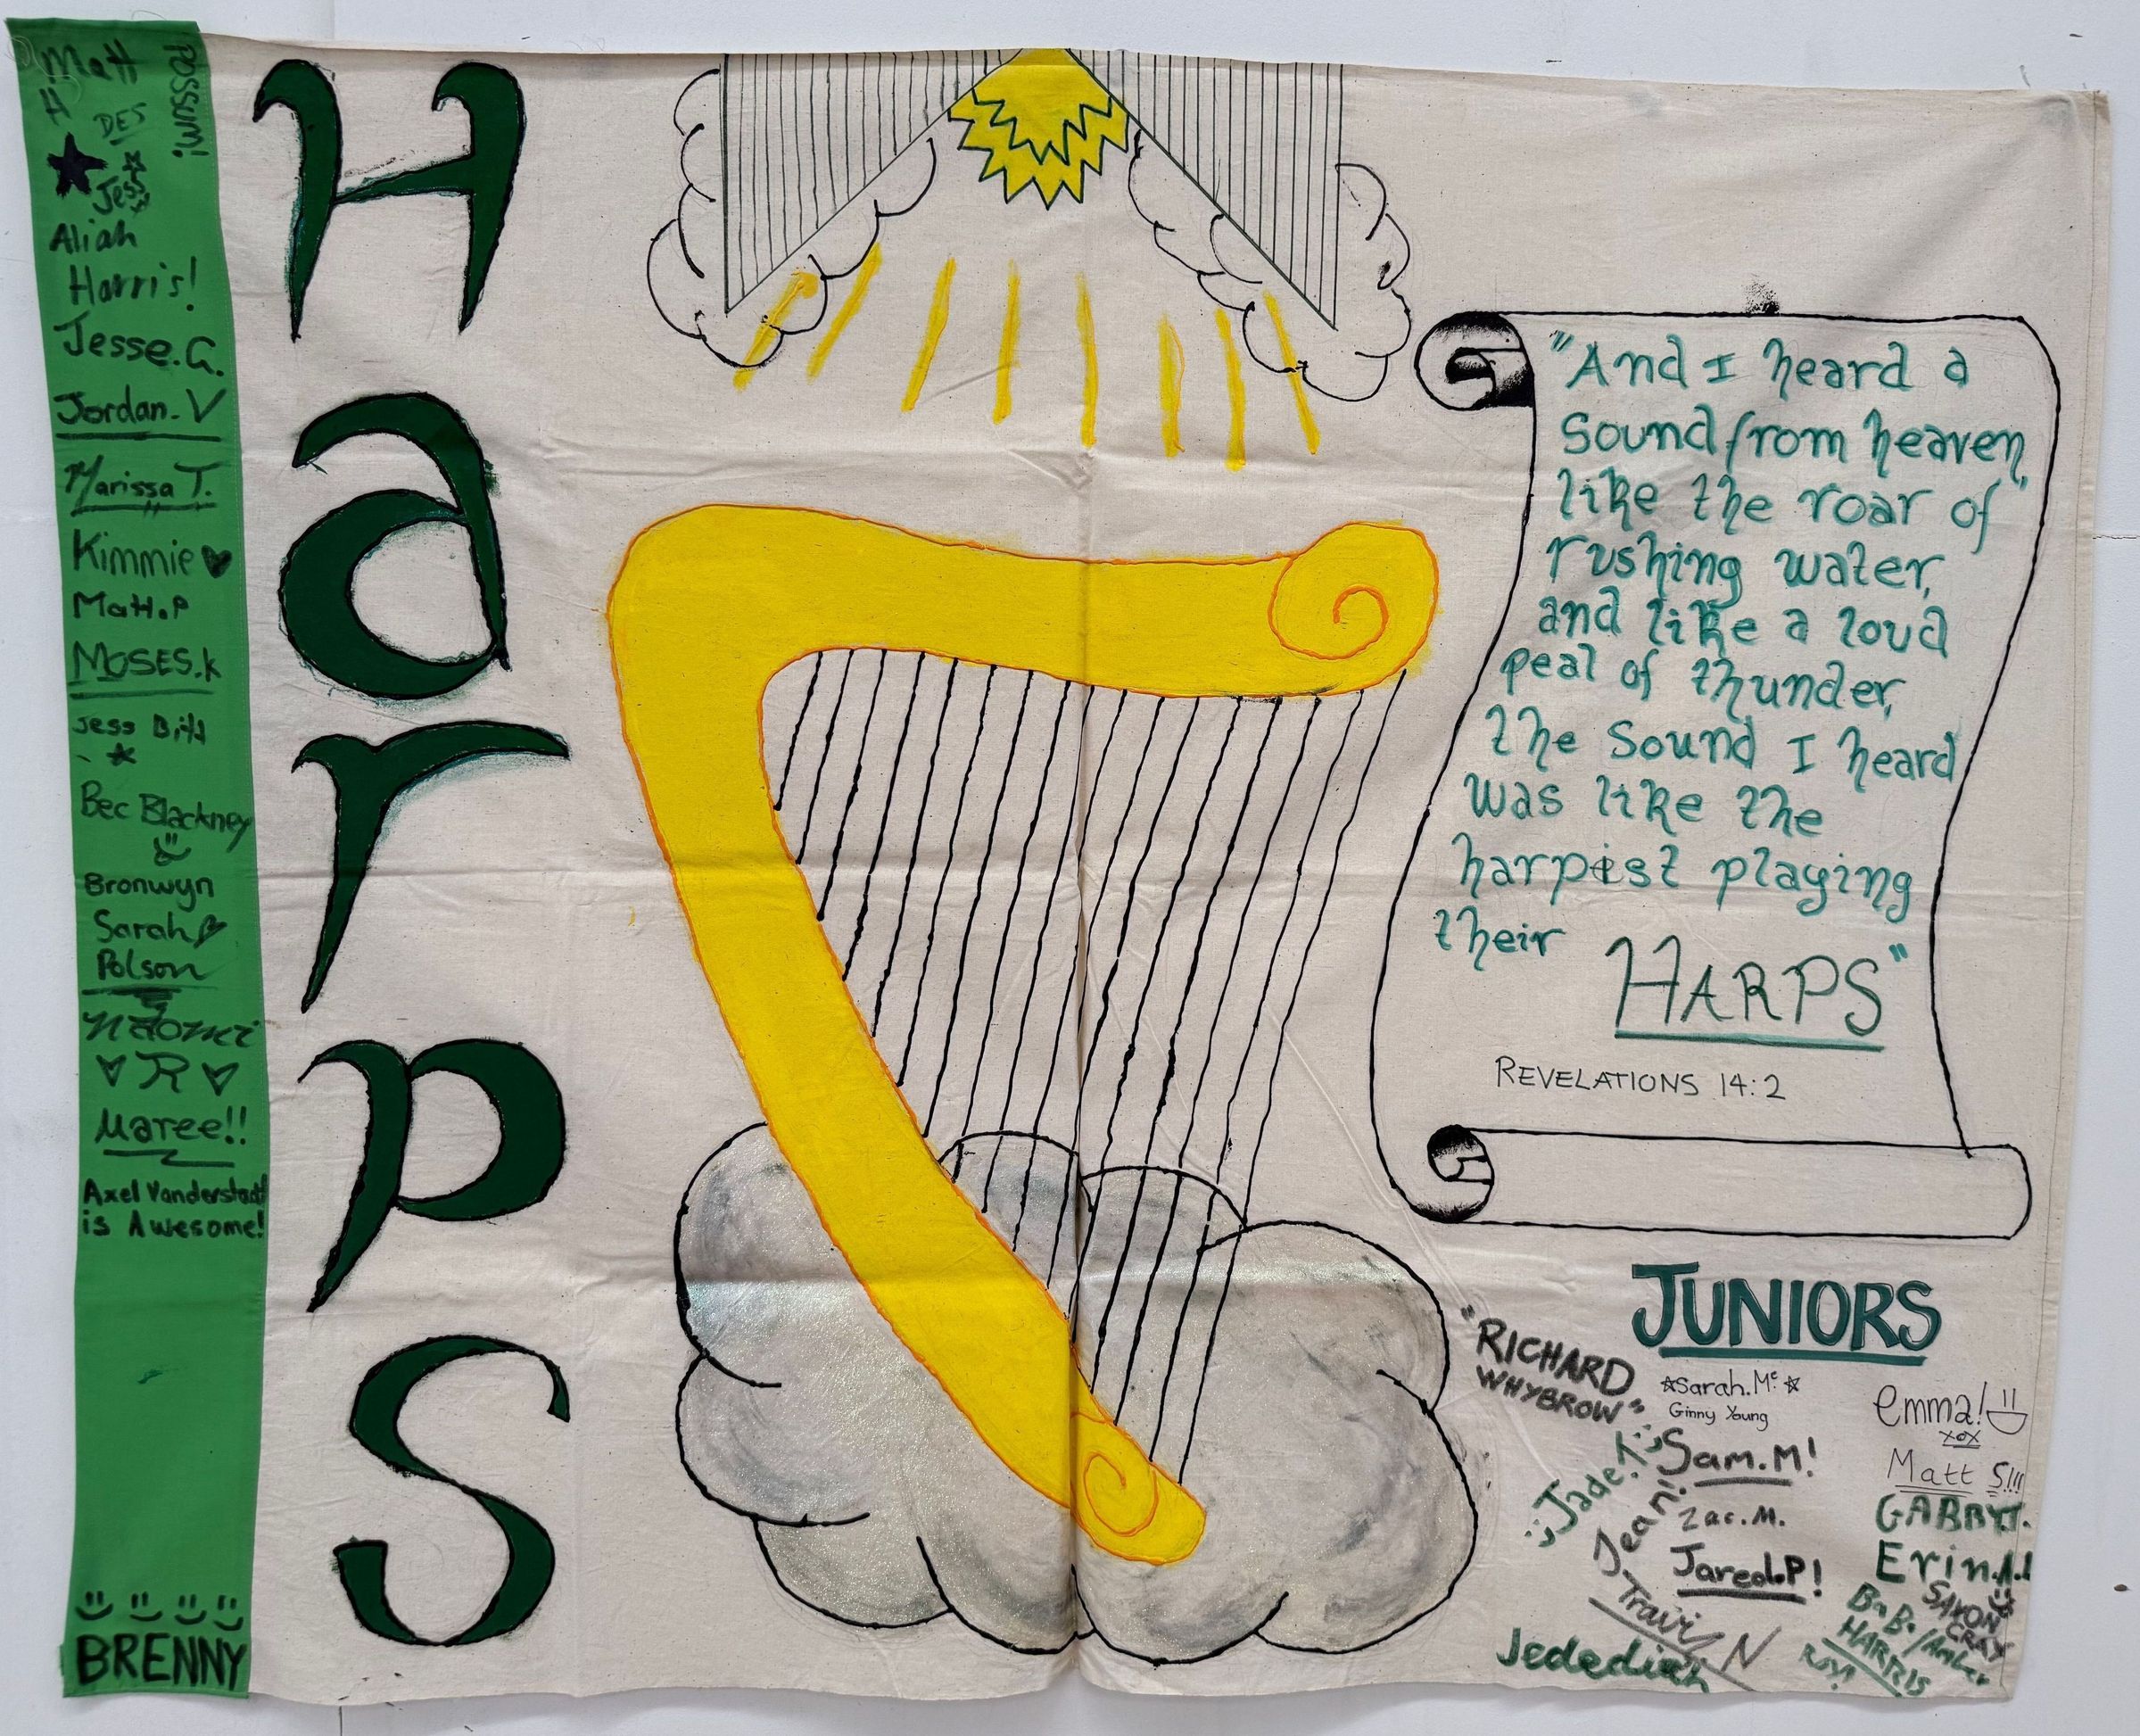 Matt
H
possum!
DES
Jess
Aliah
Harris!
Jesse.G.
Jordan.V
Marissa T.
Kimmie
Matt.P
MOSES.k
Jess Bitt
Bec Blackney
Bronwyn
Sarah
Polson
naomi
R
Maree!!
Axel Vanderstadt
is Awesome!
BRENNY
Harps
"And I heard a
sound from heaven,
like the roar of
rushing water,
and like a loud
peal of thunder,
the sound I heard
was like the
harpist playing
their
HARPS"
REVELATIONS 14:2
JUNIORS
"RICHARD
WHYBROW"
Sarah.Mc
Ginny Young
emma!
xox
Jade.K
Sam.M!
Matt S!!!
Dean!
Zac.M.
GABBY.T.
Jared.P!
Erin.A.!
Travis N
SAXON
GRAY
Ba B. / Amber
HARRIS
Roy!
Jedediah